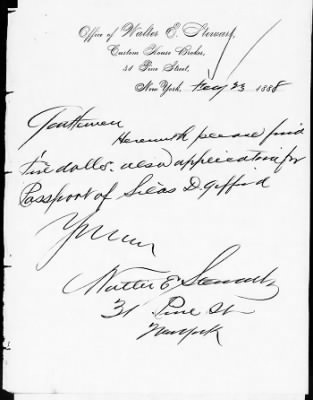 Office of Walter E. Stewart,
Custom House Broker,
31 Pine Street,
New York, 23 1888
Gentlemen
Herewith please find
five dolls. also application for
Passport of Silas D. Gifford
Yours
Walter E. Stewart
31 Pine St
New York